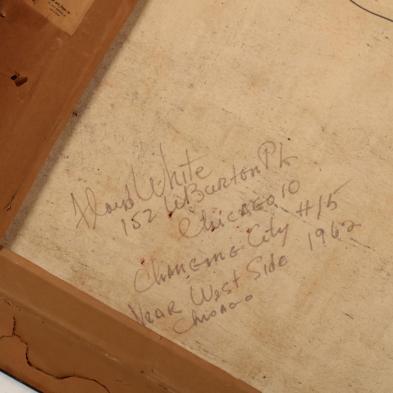 Floyd White
152 W Burton Pl
Chicago 10
Changing City #15
Near West Side 1962
Chicago